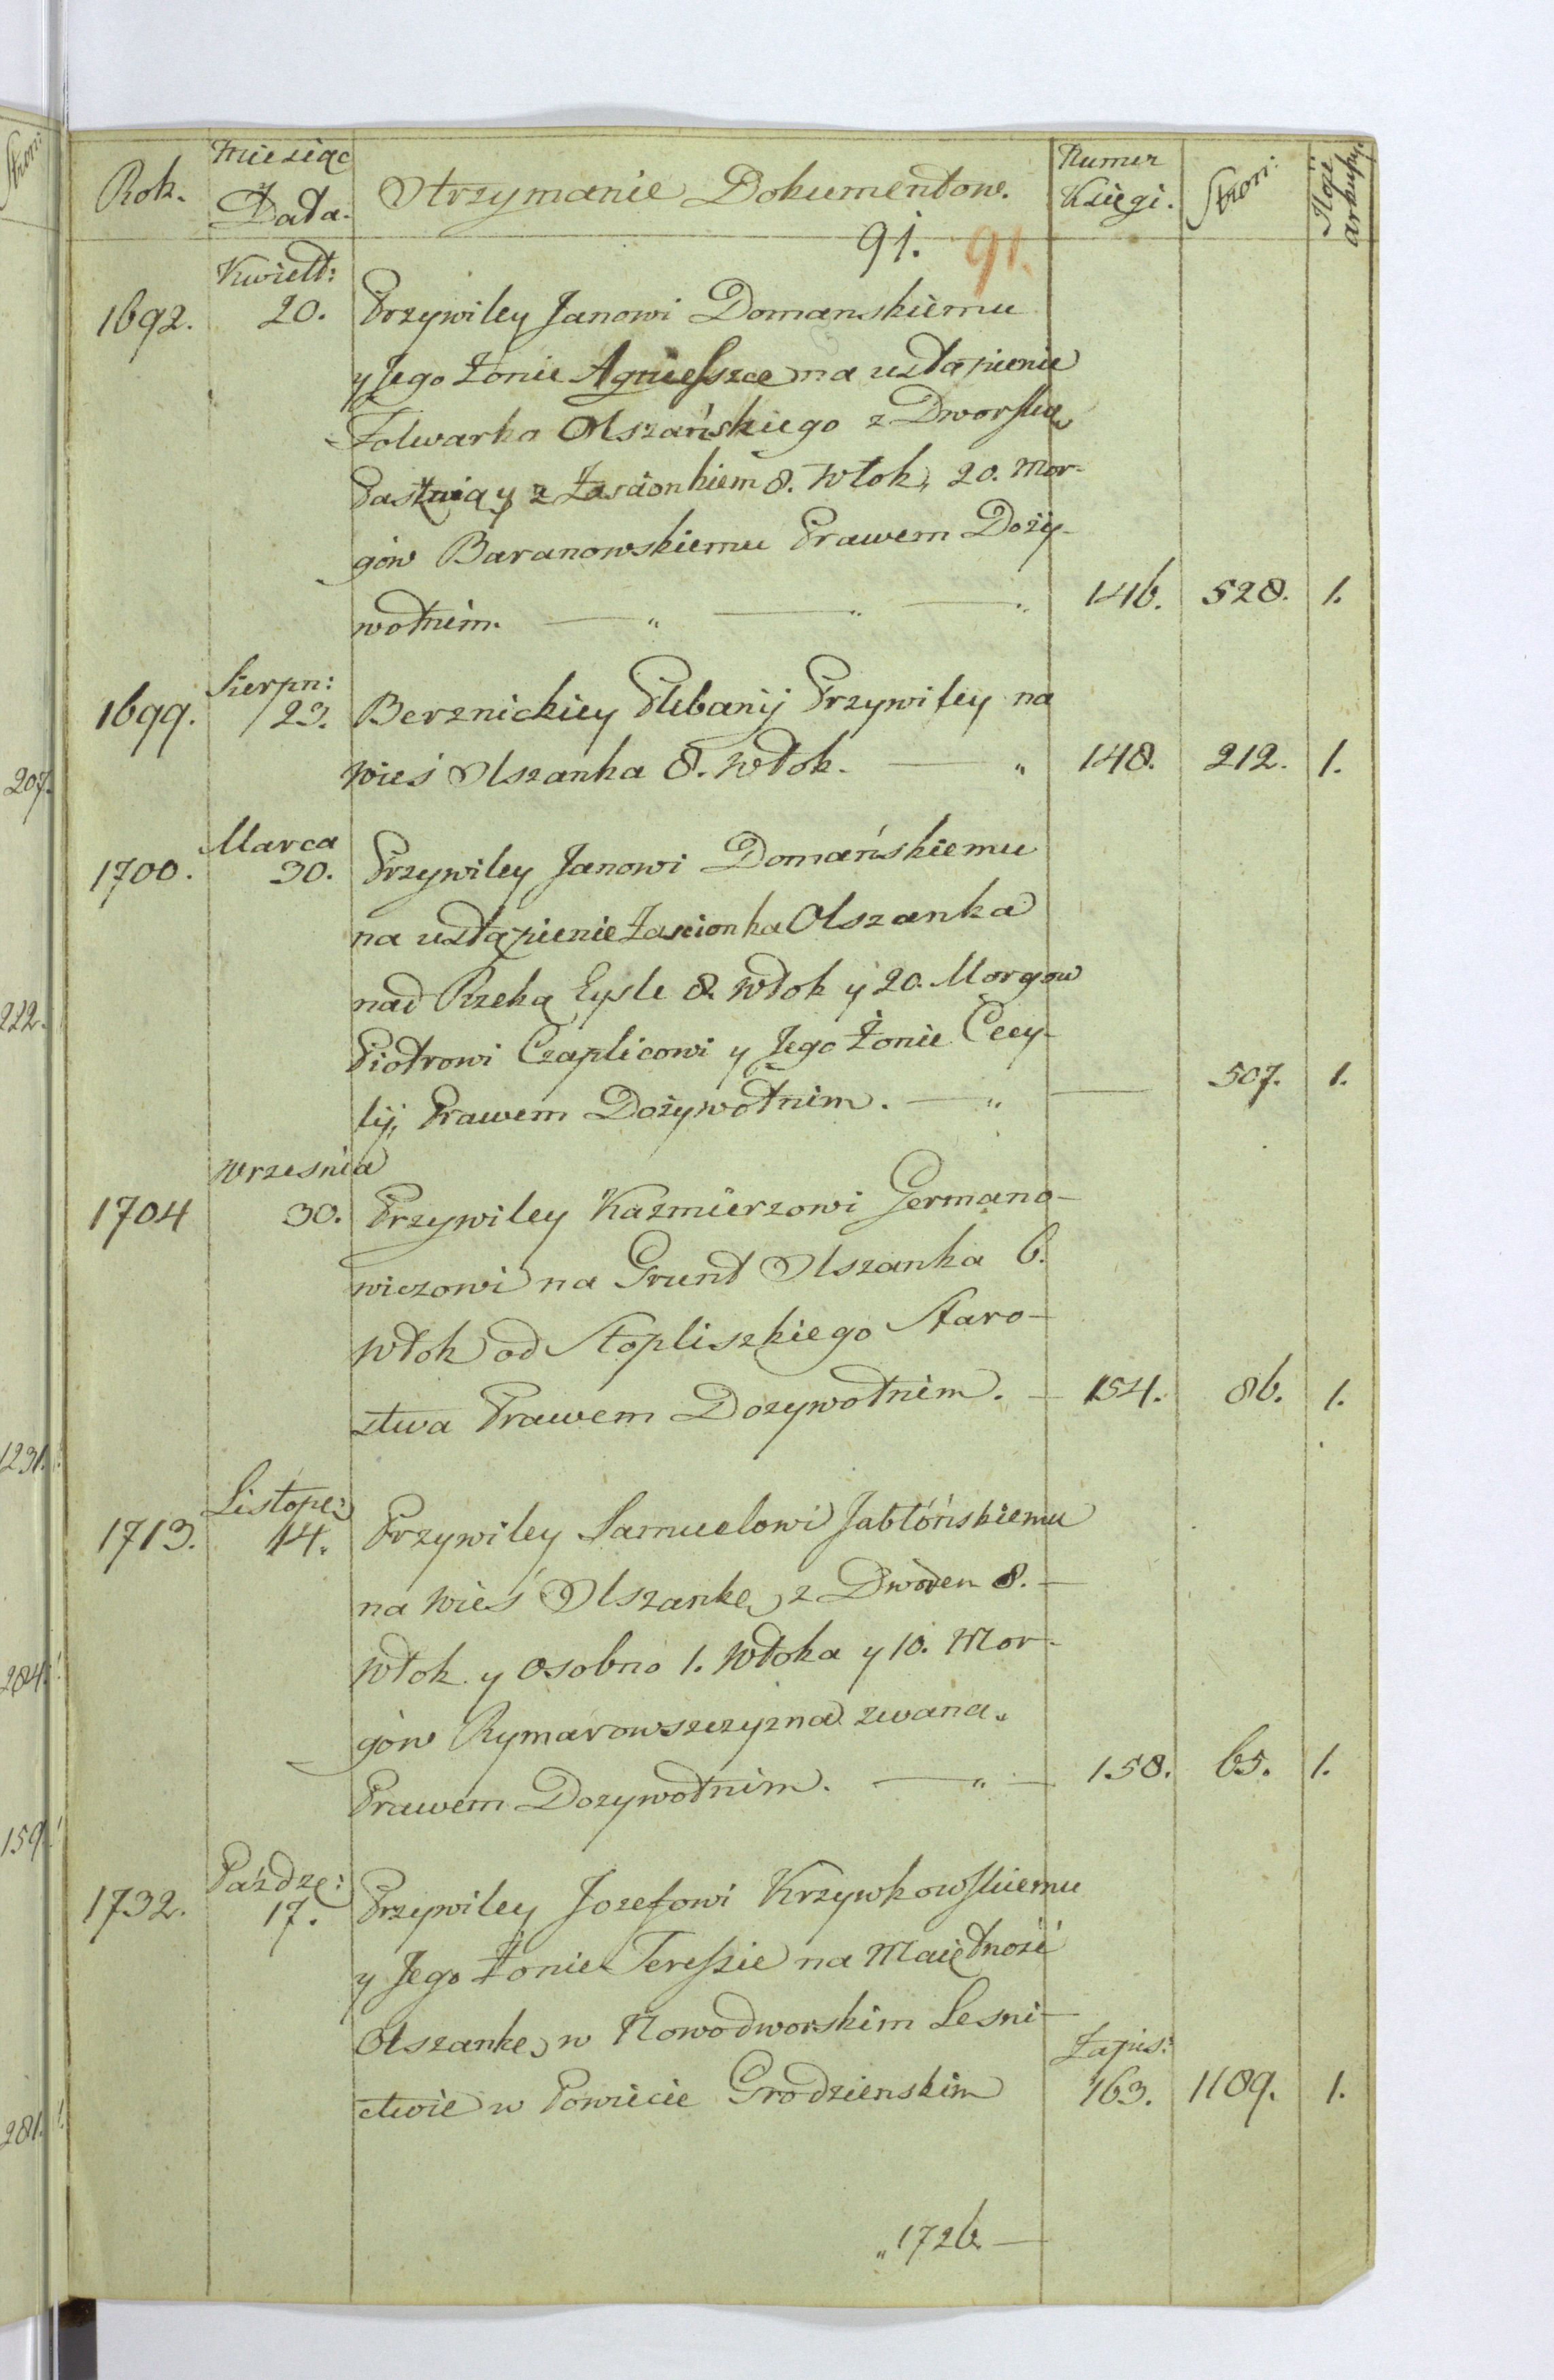 Rok. Miesiąc Data. Otrzymanie Dokumentow. Numer Księgi. Stron: Ilość arkuszy.
91. 91.
Kwiett:
1692. 20. Przywiley Janowi Domanskiemu
y Jego Żonie Agnieszce na ustąpienie
Folwarku Olszańskiego z Dworską
y z Zascionkiem 8. Włok, 20. Mor-
gów Baranowskiemu Prawem Doży-
wotnim. 146. 528. 1.
Sierpn:
1699. 23. Berznickiey Plebanij Przywiley na
wieś Olszanka 8. Włok. 148. 212. 1.
Marca
1700. 30. Przywiley Janowi Domańskiemu
na ustąpienie Zascionka Olszanka
nad Rzeką Eysle 8. Włok y 20. Morgow
Piotrowi Czaplicowi y Jego Żonie Cecy-
lij, Prawem Dożywotnim. 507. 1.
Wrzesnia
1704 30. Przywiley Kazmierzowi Germano-
wiczowi na Grunt Olszanka 6.
Włok od Stopliszkiego Staro-
stwa Prawem Dozywotnim. 154. 86. 1.
Listope:
1713. 14. Przywiley Samuelowi Jabłóńskiemu
na wieś Olszankę z Dworem 8.
Włok y osobno 1. Włoka y 10. Mor-
gów Rymarowszczyzna zwana.
Prawem Dozywotnim. 158. 65. 1.
Paźdze:
1732. 17. Przywiley Jozefowi Krzywkowskiemu
y Jego Żonie Teressie na Maiętność
Olszankę w Nowodworskim Lesni-
ctwie w Powiecie Grodzienskim Zapis: 163. 1189. 1.
1726.
Stron:
207.
222.
1231.
284.
159.
281.